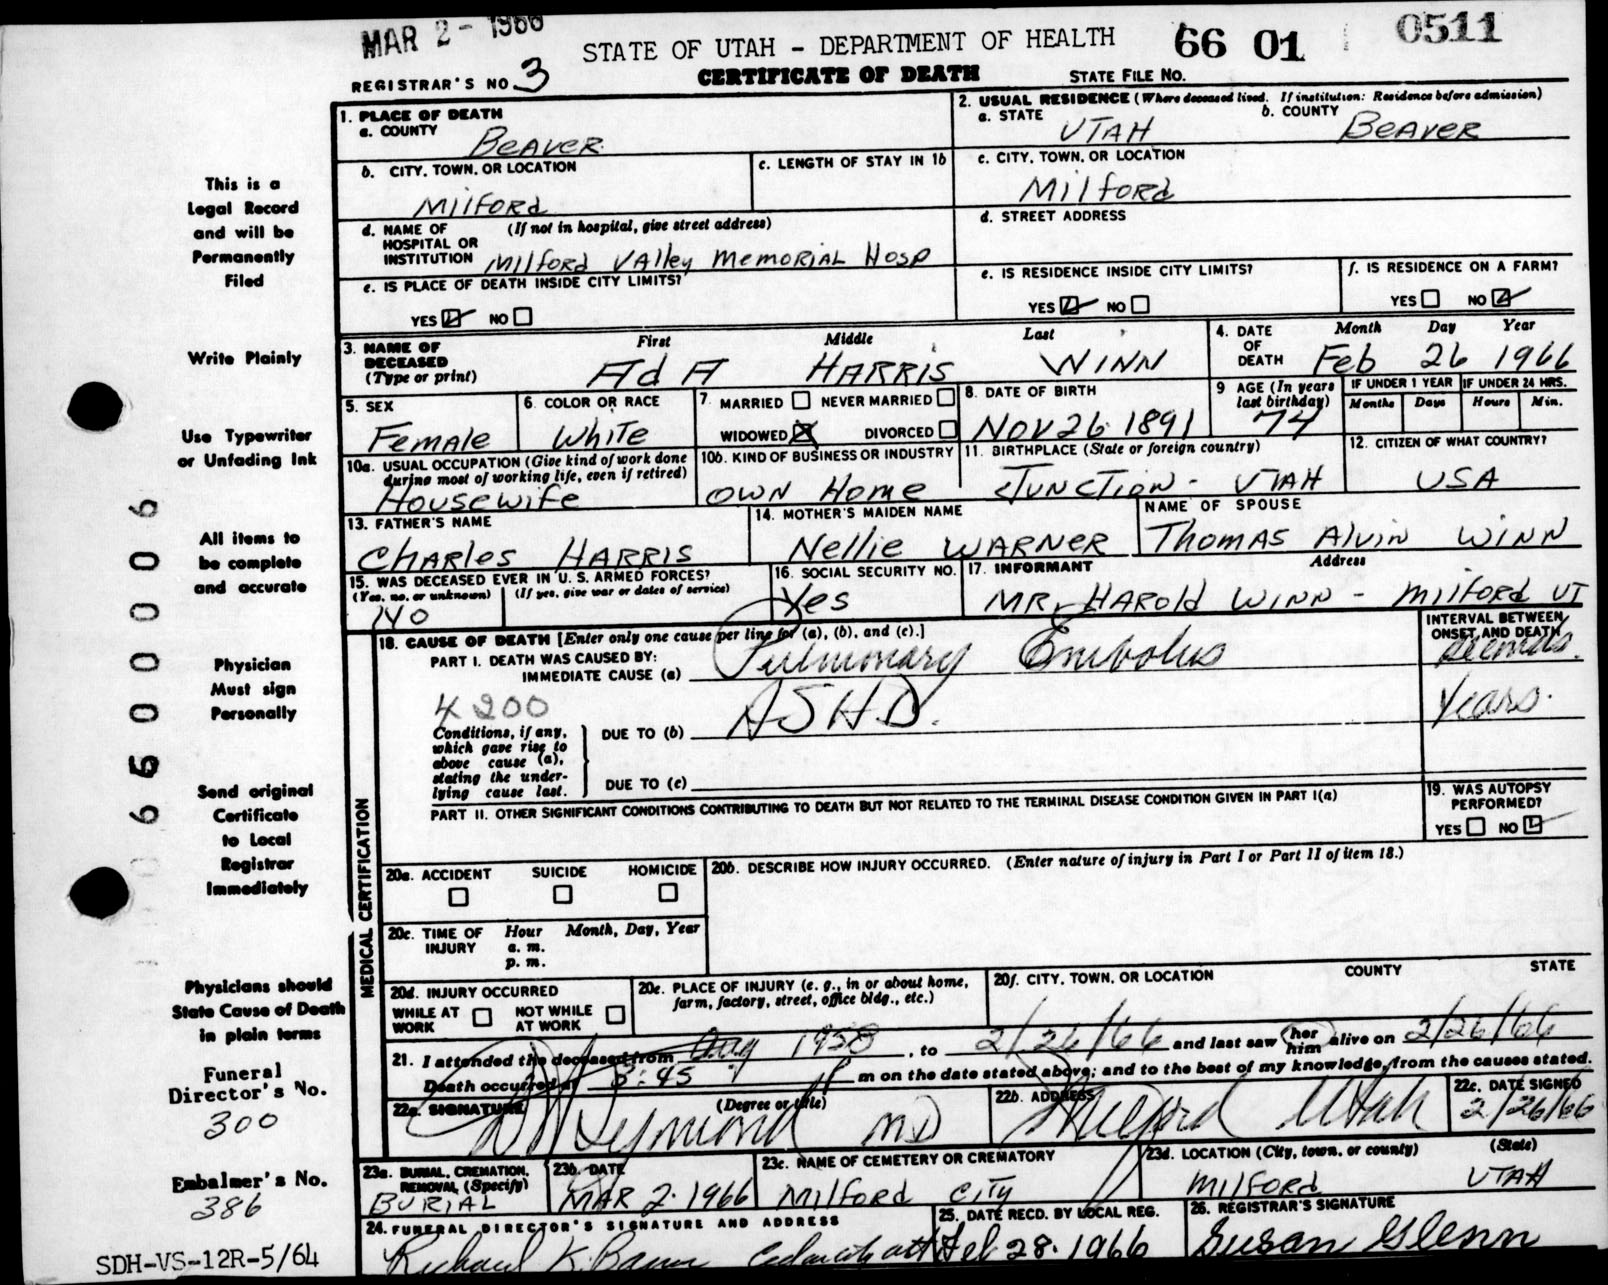 MAR 2 - 1966
STATE OF UTAH - DEPARTMENT OF HEALTH 66 01 0511
REGISTRAR'S NO. 3 CERTIFICATE OF DEATH STATE FILE NO.
1. PLACE OF DEATH
a. COUNTY Beaver
2. USUAL RESIDENCE (Where deceased lived. If institution: Residence before admission)
a. STATE UTAH b. COUNTY Beaver
b. CITY, TOWN, OR LOCATION Milford
c. LENGTH OF STAY IN 1b
c. CITY, TOWN, OR LOCATION Milford
d. NAME OF HOSPITAL OR INSTITUTION (If not in hospital, give street address) Milford Valley Memorial Hosp
d. STREET ADDRESS
e. IS PLACE OF DEATH INSIDE CITY LIMITS?
YES ☑ NO ☐
e. IS RESIDENCE INSIDE CITY LIMITS?
YES ☑ NO ☐
f. IS RESIDENCE ON A FARM?
YES ☐ NO ☑
3. NAME OF DECEASED (Type or print) First Middle Last
AdA HARRIS WINN
4. DATE OF DEATH Month Day Year
Feb 26 1966
5. SEX Female
6. COLOR OR RACE White
7. MARRIED ☐ NEVER MARRIED ☐
WIDOWED ☒ DIVORCED ☐
8. DATE OF BIRTH Nov 26 1891
9 AGE (In years last birthday) 74
IF UNDER 1 YEAR Months Days
IF UNDER 24 HRS. Hours Min.
10a. USUAL OCCUPATION (Give kind of work done during most of working life, even if retired) Housewife
10b. KIND OF BUSINESS OR INDUSTRY Own Home
11. BIRTHPLACE (State or foreign country) Junction - UTAH
12. CITIZEN OF WHAT COUNTRY? USA
13. FATHER'S NAME Charles HARRIS
14. MOTHER'S MAIDEN NAME Nellie WARNER
NAME OF SPOUSE Thomas Alvin WINN
15. WAS DECEASED EVER IN U. S. ARMED FORCES?
(Yes, no, or unknown) (If yes, give war or dates of service)
No
16. SOCIAL SECURITY NO. Yes
17. INFORMANT Address
MR. HARold WINN - Milford UT
MEDICAL CERTIFICATION
18. CAUSE OF DEATH [Enter only one cause per line for (a), (b), and (c).]
INTERVAL BETWEEN ONSET AND DEATH
PART I. DEATH WAS CAUSED BY:
IMMEDIATE CAUSE (a) Pulmonary Embolus seconds.
4200
Conditions, if any, which gave rise to above cause (a), stating the underlying cause last.
DUE TO (b) ASHD. Years.
DUE TO (c)
PART II. OTHER SIGNIFICANT CONDITIONS CONTRIBUTING TO DEATH BUT NOT RELATED TO THE TERMINAL DISEASE CONDITION GIVEN IN PART I(a)
19. WAS AUTOPSY PERFORMED?
YES ☐ NO ☑
20a. ACCIDENT SUICIDE HOMICIDE
20b. DESCRIBE HOW INJURY OCCURRED. (Enter nature of injury in Part I or Part II of item 18.)
20c. TIME OF INJURY Hour Month, Day, Year
a. m.
p. m.
20d. INJURY OCCURRED
WHILE AT WORK ☐ NOT WHILE AT WORK ☐
20e. PLACE OF INJURY (e. g., in or about home, farm, factory, street, office bldg., etc.)
20f. CITY, TOWN, OR LOCATION COUNTY STATE
21. I attended the deceased from Aug 1958, to 2/26/66 and last saw her him alive on 2/26/66
Death occurred at 3:45 P m on the date stated above; and to the best of my knowledge, from the causes stated.
22a. SIGNATURE (Degree or title) MD
22b. ADDRESS Milford Utah
22c. DATE SIGNED 2/26/66
23a. BURIAL, CREMATION, REMOVAL (Specify) BURIAL
23b. DATE MAR 2. 1966
23c. NAME OF CEMETERY OR CREMATORY Milford City
23d. LOCATION (City, town, or county) (State)
Milford UTAH
24. FUNERAL DIRECTOR'S SIGNATURE AND ADDRESS
Richard K.
25. DATE RECD. BY LOCAL REG. Feb 28. 1966
26. REGISTRAR'S SIGNATURE
Susan Glenn
This is a
Legal Record
and will be
Permanently
Filed
Write Plainly
Use Typewriter
or Unfading Ink
All items to
be complete
and accurate
Physician
Must sign
Personally
Send original
Certificate
to Local
Registrar
Immediately
Physicians should
State Cause of Death
in plain terms
Funeral
Director's No.
300
Embalmer's No.
386
SDH-VS-12R-5/64